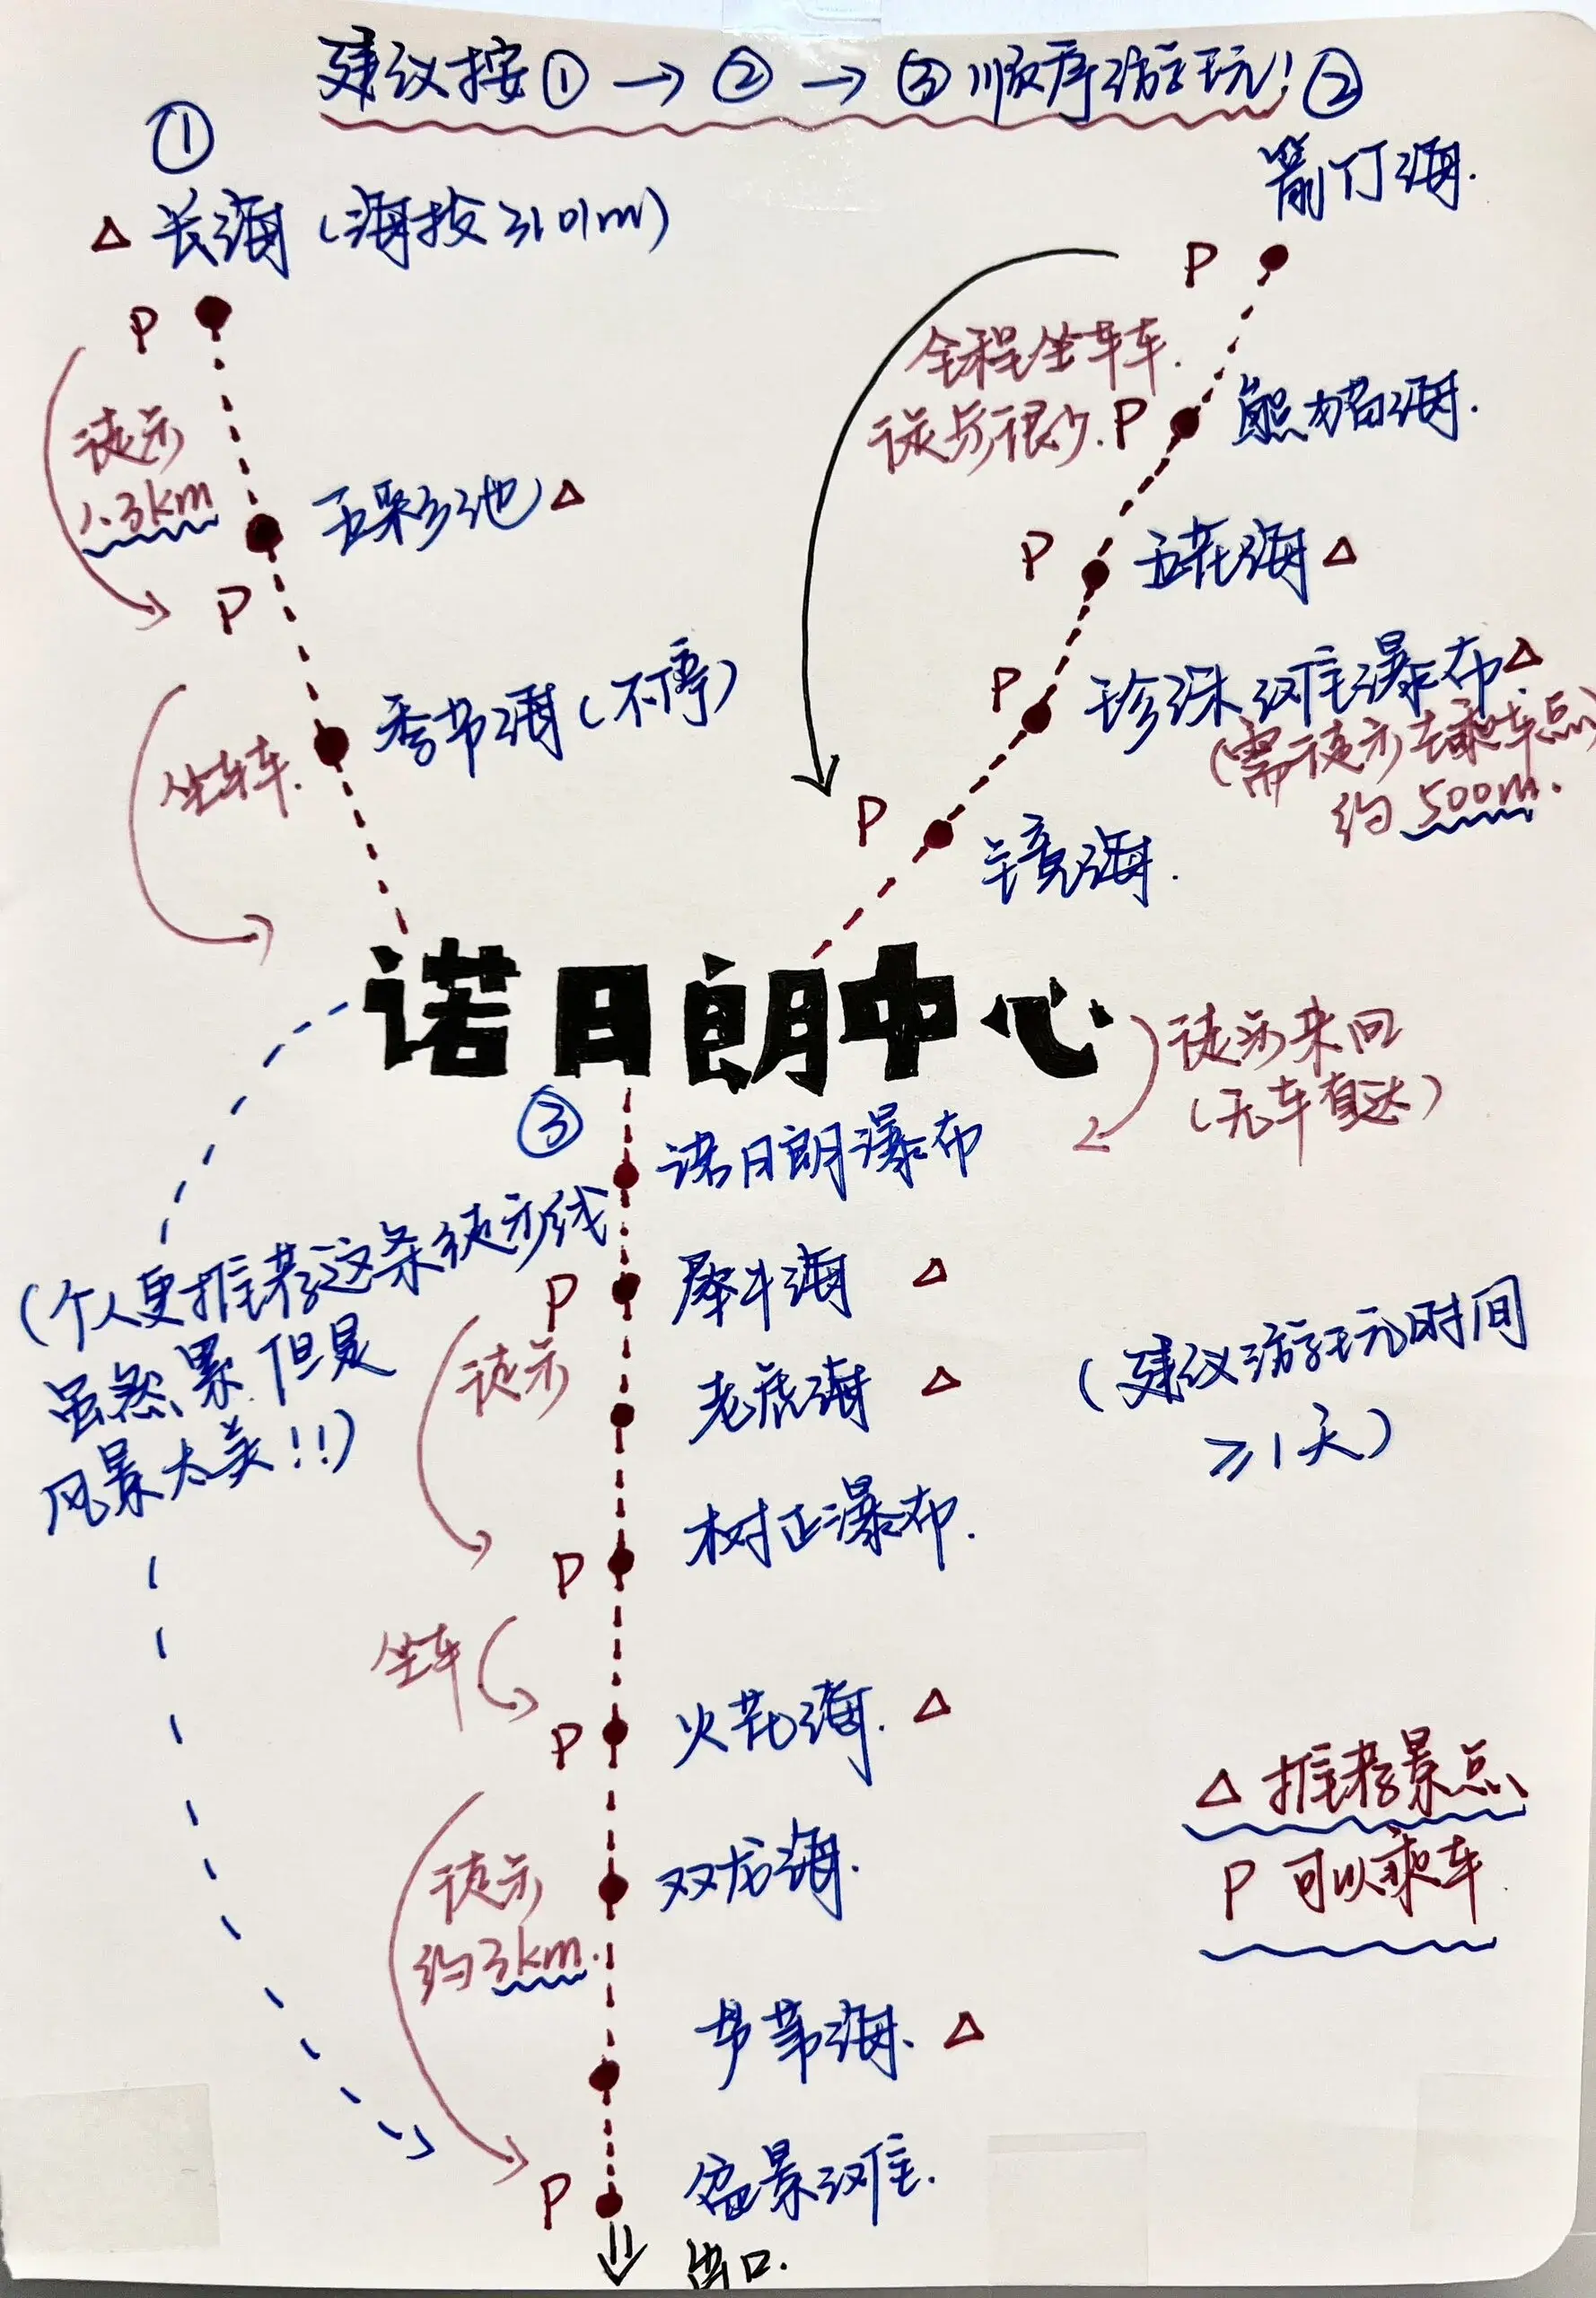 建议按①→②→③顺序游玩!
①
△ 长海(海拔3101m)
P
徒步
1.3km
五彩池 △
P
季节海(不停)
坐车车.
②
箭竹海.
P
全程坐车车.
徒步很少.
P
熊猫海.
P
五花海 △
P
珍珠滩瀑布 △
(需徒步去乘车点)
约500m.
P
镜海.
诺日朗中心
徒步来回
(无车直达)
③
诺日朗瀑布
(个人更推荐这条徒步线
虽然累.但是
风景太美!!)
P
犀牛海 △
徒步
老虎海 △
(建议游玩时间
≥1天)
树正瀑布.
P
坐车
P
火花海. △
徒步
约3km.
双龙海.
芦苇海. △
P
盆景滩.
出口.
△ 推荐景点
P 可以乘车